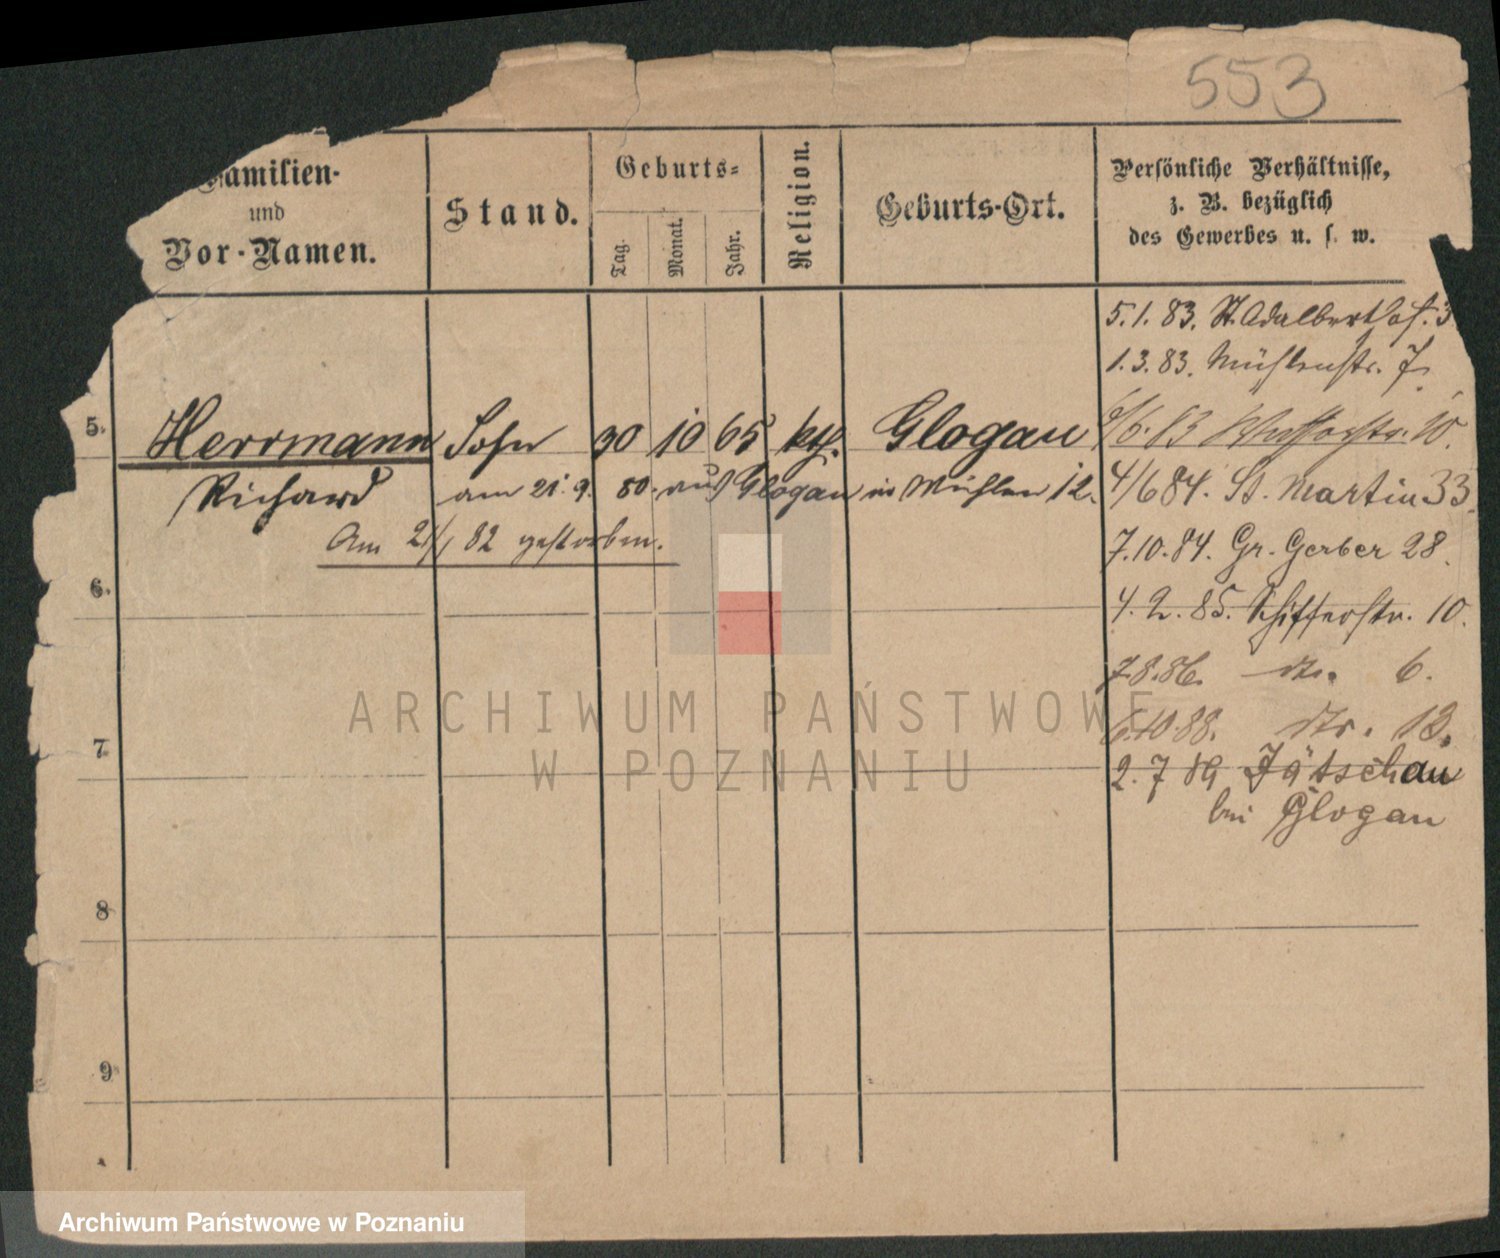 553
Familien-
und
Vor-Namen.
Stand.
Geburts-
Tag.
Monat.
Jahr.
Religion.
Geburts-Ort.
Persönliche Verhältnisse,
z. B. bezüglich
des Gewerbes u. s. w.
5.1.83. St. Adalberthof. 3
1.3.83. Mühlenstr. 7.
5. Herrmann Sohn 30 10 65 kth. Glogau
Richard am 21. 9. 80. aus Glogau in Mühlen 12.
Am 21/1 82 gestorben.
6/6.83 10.
4/6 84. St. Martin 33.
7.10.84. Gr. Gerber 28.
6.
4.2.85. Schifferstr. 10.
7.8.86. 6.
6.10.88. 13.
7.
2.7 89 Jätschau
bei Glogau
8
9
ARCHIWUM PAŃSTWOWE
W POZNANIU
Archiwum Państwowe w Poznaniu